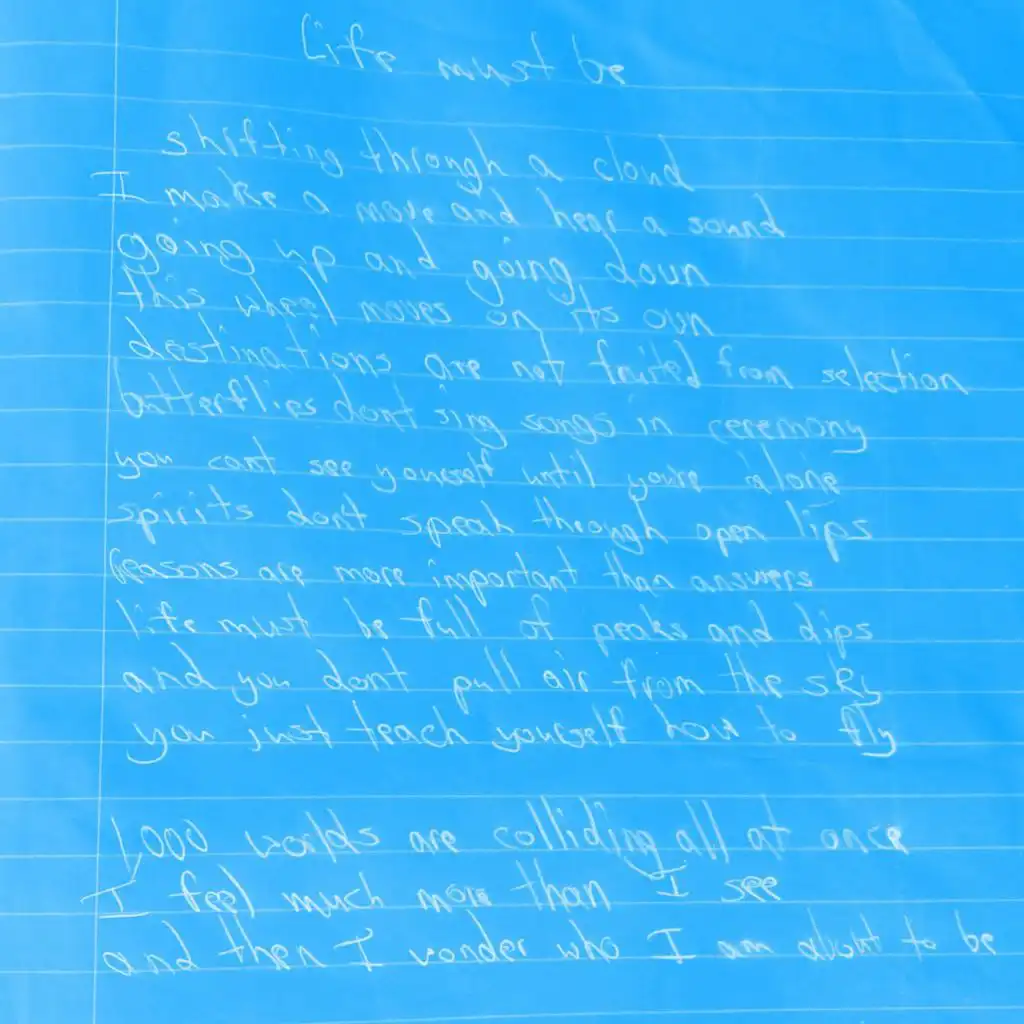 Life must be
shifting through a cloud
I make a move and hear a sound
going up and going down
this wheel moves on its own
destinations are not from selection
butterflies dont sing songs in ceremony
you cant see yourself until you're alone
spirits dont speak through open lips
Reasons are more important than answers
life must be full of peaks and dips
and you dont pull air from the sky
you just teach yourself how to fly
1,000 worlds are colliding all at once
I feel much more than I see
and then I wonder who I am about to be